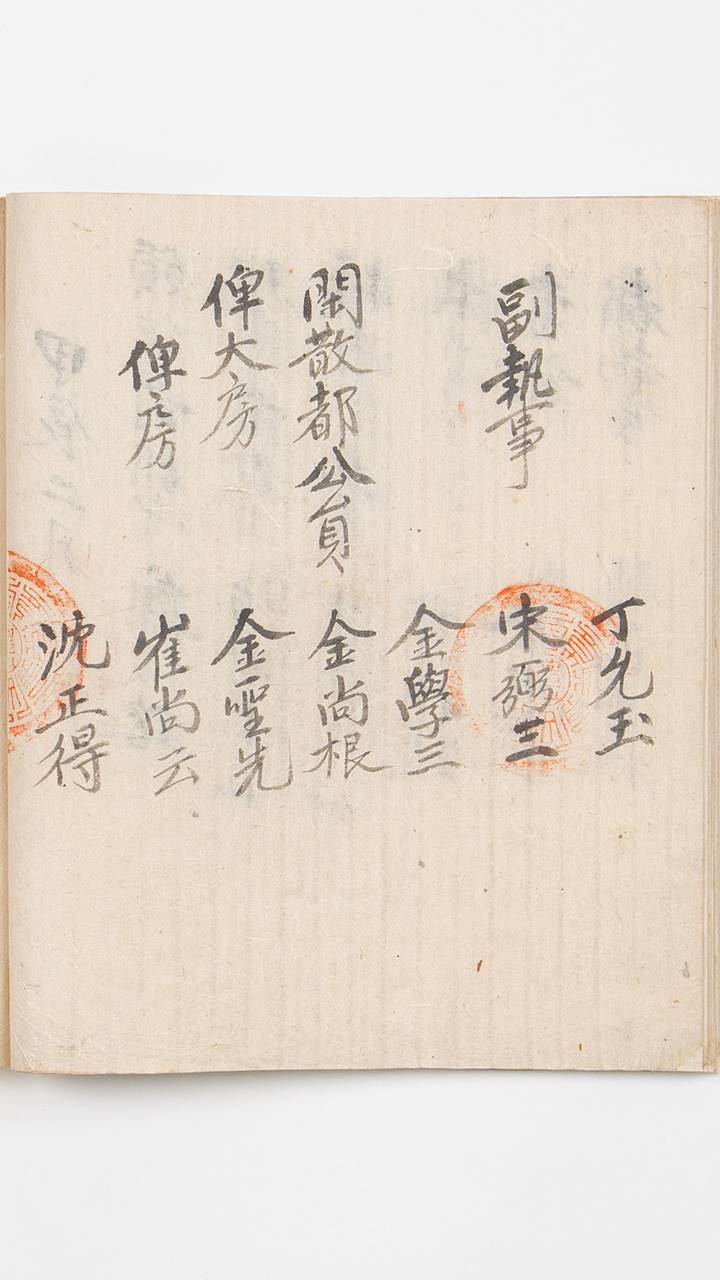 丁允玉
副執事 宋弼三
金學三
閑散都公員 金尚根
俾大房 金聖先
俾房 崔尚云
沈正得